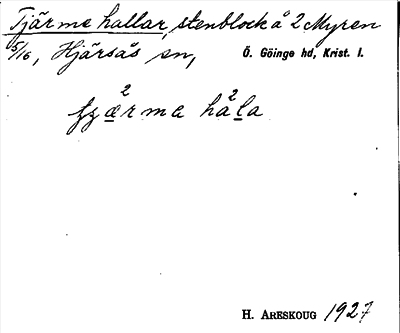 Tjärme hallar, stenblock å 2 Myren
5/16, Hjärsås sn, Ö. Göinge hd, Krist. l.
2 2
ʈʂærma hala
H. ARESKOUG 1927